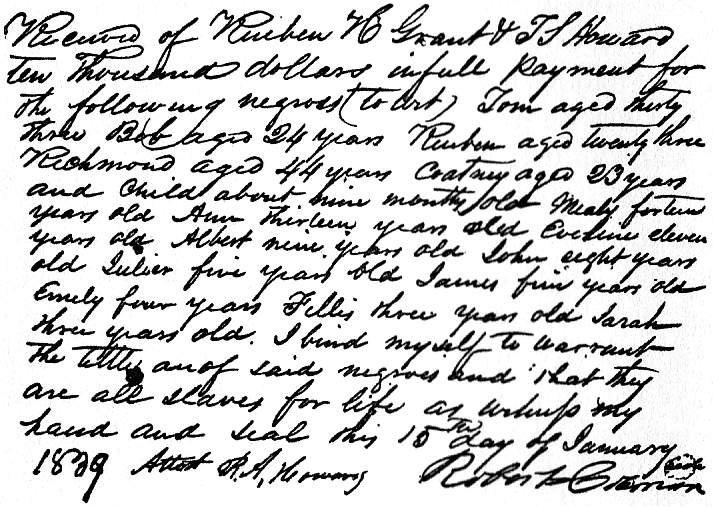 Received of Reuben H Grant & T S Howard
ten thousand dollars in full payment for
the following negros (to wit) Tom aged thirty
three Bob aged 24 years Reuben aged twenty three
Richmond aged 44 years Coatney aged 23 years
and Child about nine months old Mealy forteen
years old Ann thirteen years old Eveline eleven
years old Albert nine years old John eight years
old Julier five years old James five years old
Emely four years Fellis three years old Sarah
three years old. I bind myself to warrant
the tittle of said negroes and that they
are all slaves for life as witness my
hand and seal this 15 day of January
1839 Attest R. A. Howard Robert